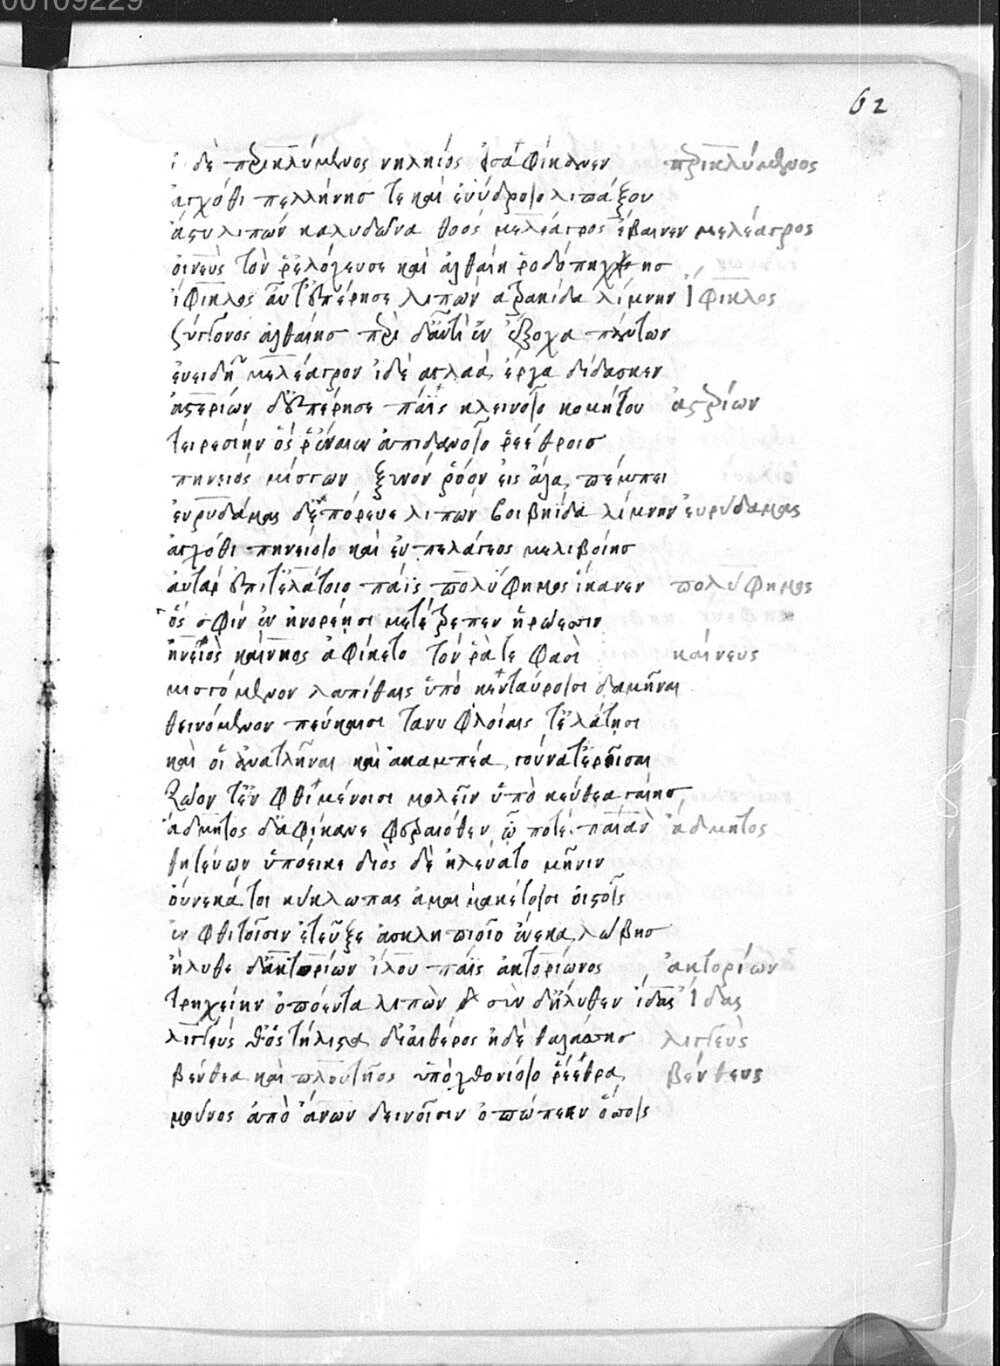 00109229
62
ἠδὲ περικλύμενος νηληϊὸς εἰσαφίκανεν περικλύμενος
ἀγχόθι πελλήνησ τε καὶ ἐυύδροιο λιπάξου
ἄστυ λιπὼν καλυδῶνα θοὸς μελέαγρος ἔβαινεν μελέαγρος
οἰνεὺς τὸν ῥ' ἐλόχευσε καὶ ἀλθαίη ῥοδόπηχυς
ἴφικλος αὖτ' ἐπέρησε λιπὼν ἀτρακίδα λίμνην ἴφικλος
ξύγγονος ἀλθαίησ περὶ δ' αὖ τὶ ἐν ἔξοχα πάντων
ἐυειδῆ μελέαγρον ἰδὲ ἀγλαὰ ἔργα δίδασκεν
ἀστεριών δ' ἐπέρησε πάϊς κλεινοῖο κομήτου ἀστερίων
πειρεσίην ὃς ἔναιεν ἀπιδανοῖο ῥεέθροισ
πηνειὸς μίσγων ξυνὸν ῥόον εἰς ἅλα πέμπει
ἐυρυδάμας δ' ἐπόρευε λιπὼν βοιβηίδα λίμνην ἐυρύδαμας
ἀγχόθι πηνείοιο καὶ ἐυπελάγεος μελιβοίησ
ἀυτὰρ ἐπ' εἰλατίοιο πάϊς πολύφημος ἵκανεν πολύφημος
ὅς σφιν ἐν ἠνορέῃσι μετέπρεπεν ἡρώεσσιν
καίνηος ἀφίκετο τόν ῥά τε φασὶ καίνεὺς
μισγόμενον λαπίθαις ὑπὸ κενταύροισι δαμῆναι
θεινόμενον πεύκαισι τανυφλοίαις τ' ἐλάτῃσι
καὶ οἱ ἀνατλῆναι καὶ ἀκαμπέα γούνατ' ἐρεῖσαι
ζωὸν τ' ἐν φθιμένοισι μολεῖν ὑπὸ κεύθεα γαίησ
ἄδμητος δ' ἀφίκανε φεραιόθεν ᾧ ποτε παιὰν ἄδμητος
θητεύων ὑπόεικε διὸς δὲ ἠλεύατο μῆνιν
οὕνεκά τοι κύκλωπας ἀμαιμακέτοισι ὀιστοῖς
ἐν φθιτοῖσιν ἔτευξε ἀσκληπιοῖο ἕνεκα λώβησ
ἤλυθε δ' ἀκτορίων ἴλου πάϊς ἀκτορίωνος ἀκτορίων
τρηχείην ὀπόεντα λιπὼν σὺν δ' ἤλυθεν ἴδας ἴδας
λιγγεύς θ' ὃς τήλιστα δι' αἰθέρος ἠδὲ θαλάσσης λιγγεὺς
βένθεα καὶ πλουτῆος ὑποχθονίοιο ῥέεθρα βένθευς
μοῦνος ἀπὸ ἄνων δεινοῖσιν ὀπώπεεν ὄσσοις